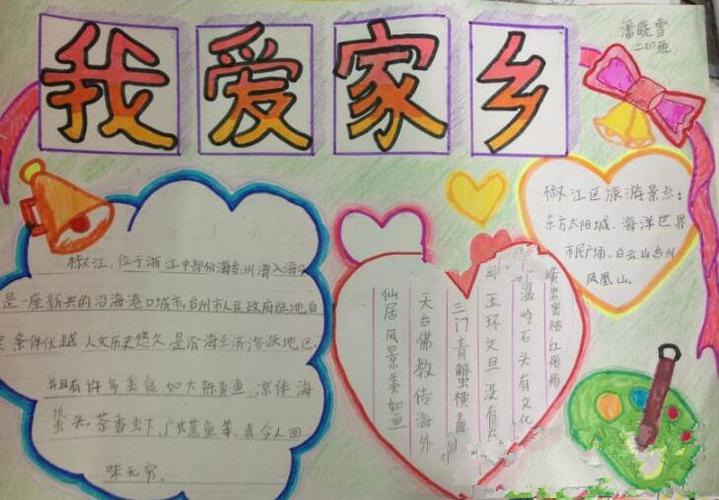 我爱家乡
潘晓雪
二(2)班
椒江,位于浙江中部份海台州湾入海
是一座新兴的沿海港口城市,台州市人民政府驻地,自
条件优越,人文历史悠久,是沿海经济
地区.
并且有许多美食,如大陈黄鱼,凉伴海
蜇头,茶香虾,广式蒸鱼等,真令人回
味无穷。
椒江区旅游景点:
东方太阳城、海洋世界
市民广场、白云山台州
凤凰山。
黄岩蜜桔红彤彤
温岭石头有文化
玉环文旦没有
三门青蟹横着
天台佛教传海外
仙居风景美如画